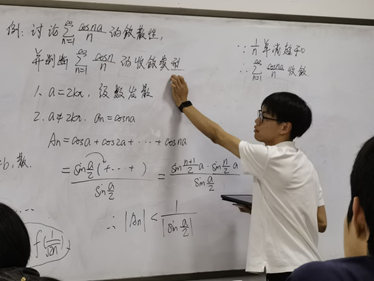 例: 讨论 ∑_{n=1}^{∞} cosna/n 的敛散性,
并判断 ∑_{n=1}^{∞} cosn/n 的收敛类型
1. a=2kπ, 级数发散
2. a≠2kπ, an=cosna
An=cosa+cos2a+···+cosna
= sin a/2 (+···+) / sin a/2 = sin (n+1)/2 a · sin n/2 a / sin a/2
∴ |An| < 1/|sin a/2|
=b, 散.
∵ 1/n 单调趋于0
∴ ∑_{n=1}^{∞} cosna/n 收敛